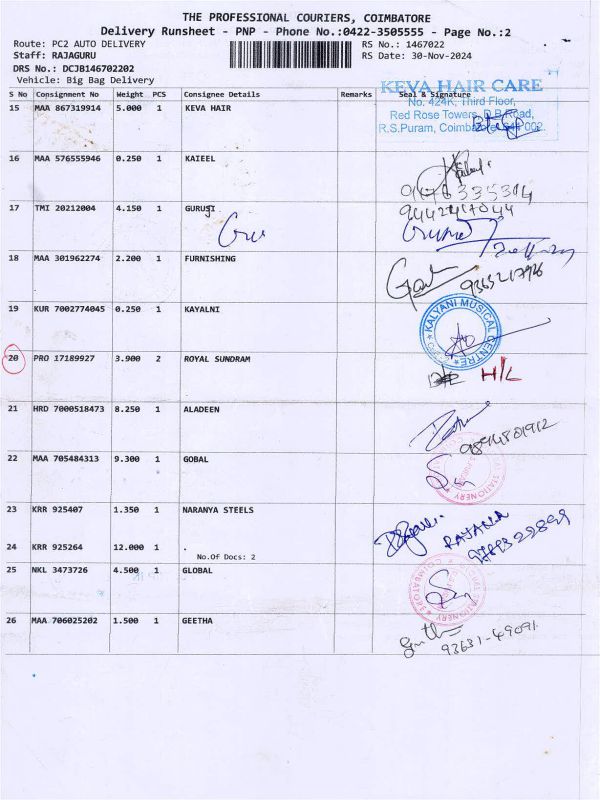 THE PROFESSIONAL COURIERS, COIMBATORE
Delivery Runsheet - PNP - Phone No.:0422-3505555 - Page No.:2
Route: PC2 AUTO DELIVERY RS No.: 1467022
Staff: RAJAGURU RS Date: 30-Nov-2024
DRS No.: DCJB146702202
Vehicle: Big Bag Delivery
S No Consignment No Weight PCS Consignee Details Remarks Seal & Signature
KEVA HAIR CARE
No. 424K, Third Floor,
Red Rose Towers, D.B.Road,
R.S.Puram, Coimbatore-641 002.
15 MAA 867319914 5.000 1 KEVA HAIR
16 MAA 576555946 0.250 1 KAIEEL
17 TMI 20212004 4.150 1 GURUSJI
9442417044
18 MAA 301962274 2.200 1 FURNISHING
9365217926
19 KUR 7002774045 0.250 1 KAYALNI
KALYANI MUSICAL CENTRE
20 PRO 17189927 3.900 2 ROYAL SUNDRAM
H/L
21 HRD 7000518473 8.250 1 ALADEEN
9894801912
22 MAA 705484313 9.300 1 GOBAL
STATIONERY
23 KRR 925407 1.350 1 NARANYA STEELS
24 KRR 925264 12.000 1 .
No.Of Docs: 2
25 NKL 3473726 4.500 1 GLOBAL
STATIONERY
26 MAA 706025202 1.500 1 GEETHA
93631-49091